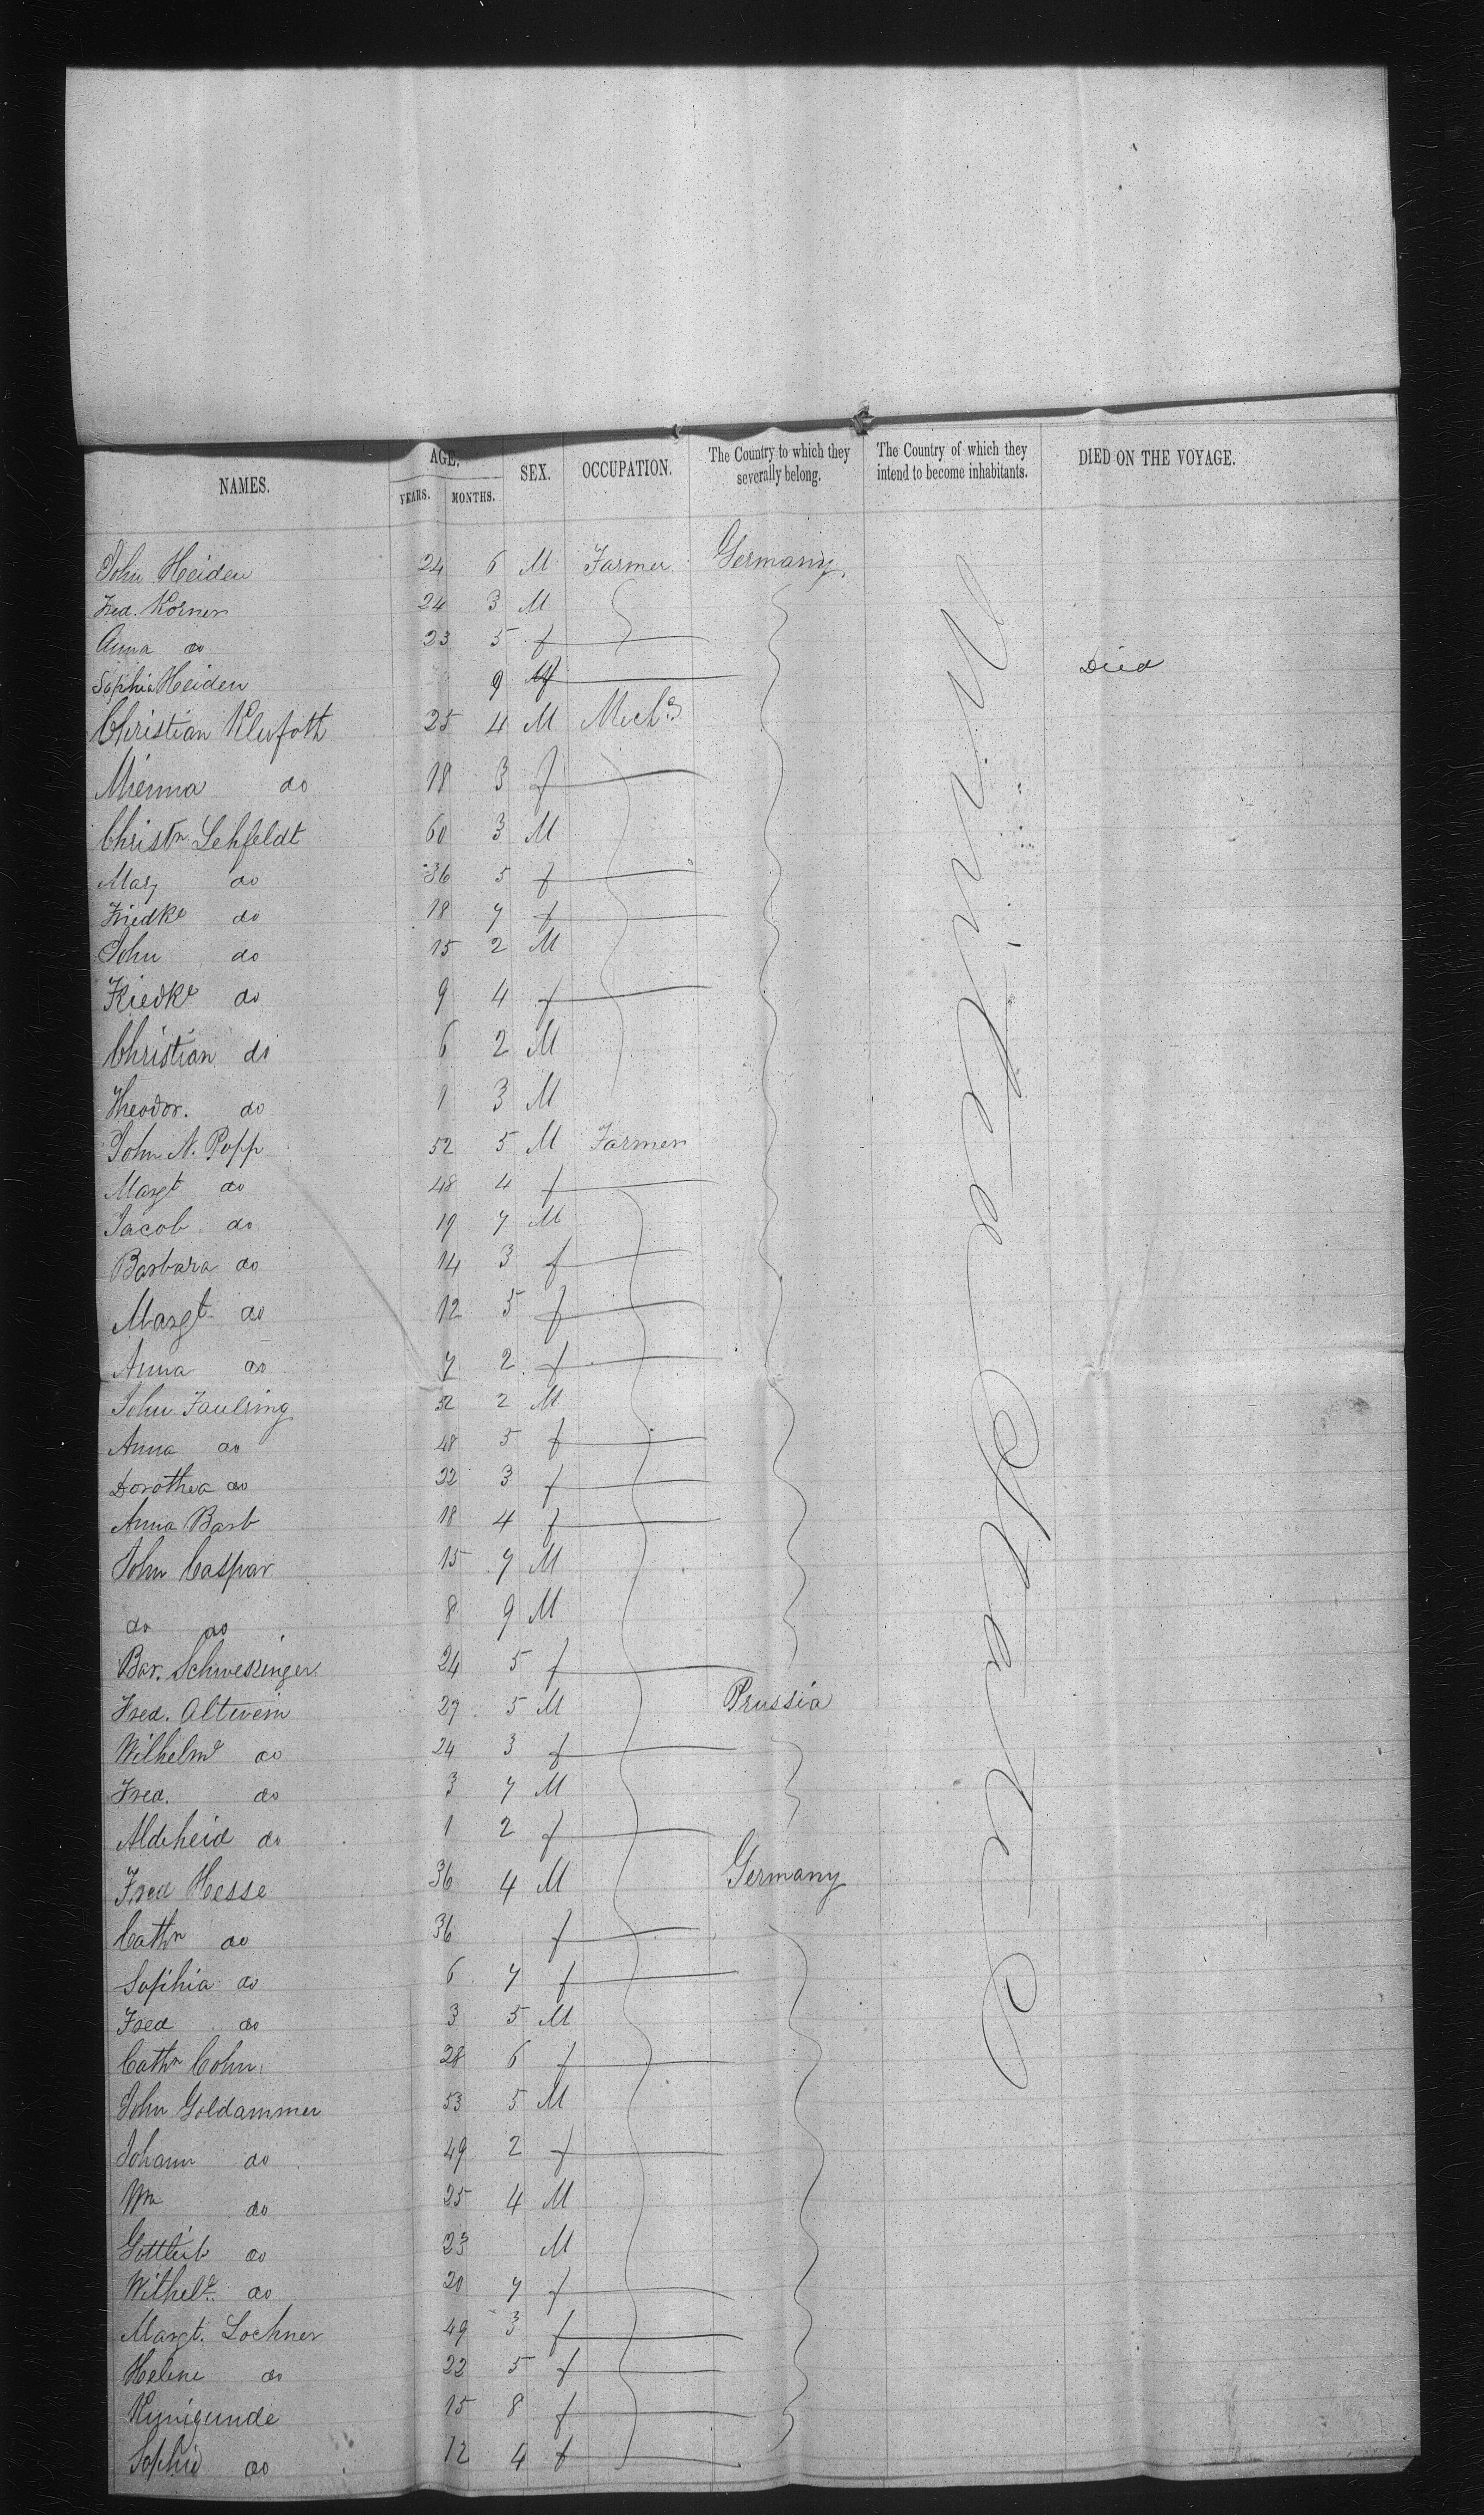 NAMES. AGE. YEARS. MONTHS. SEX. OCCUPATION. The Country to which they severally belong. The Country of which they intend to become inhabitants. DIED ON THE VOYAGE.
John Heiden 24 6 M Farmer Germany
Fred. Korner 24 3 M
Anna do 23 5 f
Sophia Heiden 9 f Died
Christian 25 4 M Mech
do 18 3 f
Christn Lehfeldt 60 3 M
Mary do 36 5 f
Friedke do 18 7 f
John do 15 2 M
Friedke do 9 4 f
Christian do 6 2 M
Theodor. do 1 3 M
John N. Popp 52 5 M Farmer
Margt do 48 4 f
Jacob do 19 7 M
Barbara do 14 3 f
Margt do 12 5 f
Anna do 7 2 f
John Faulsing 32 2 M
Anna do 48 5 f
Dorothea do 22 3 f
Anna Barb 18 4 f
John Caspar 15 7 M
do do 8 9 M
Bar. Schwesinger 24 5 f
Fred. Altwein 27 5 M Prussia
Wilhelme do 24 3 f
Fred. do 3 7 M
Aldeheid do 1 2 f
Fred Hesse 36 4 M Germany
Cathn do 36 f
Sophia do 6 7 f
Fred do 3 5 M
Cathn Cohn 28 6 f
John Goldammer 53 5 M
Johann do 49 2 f
Wm do 25 4 M
Gottlieb do 23 M
Wilhele do 20 7 f
Margt. Lochner 49 3 f
Helene do 22 5 f
Kunigunde 15 8 f
Sophie do 12 4 f
United States